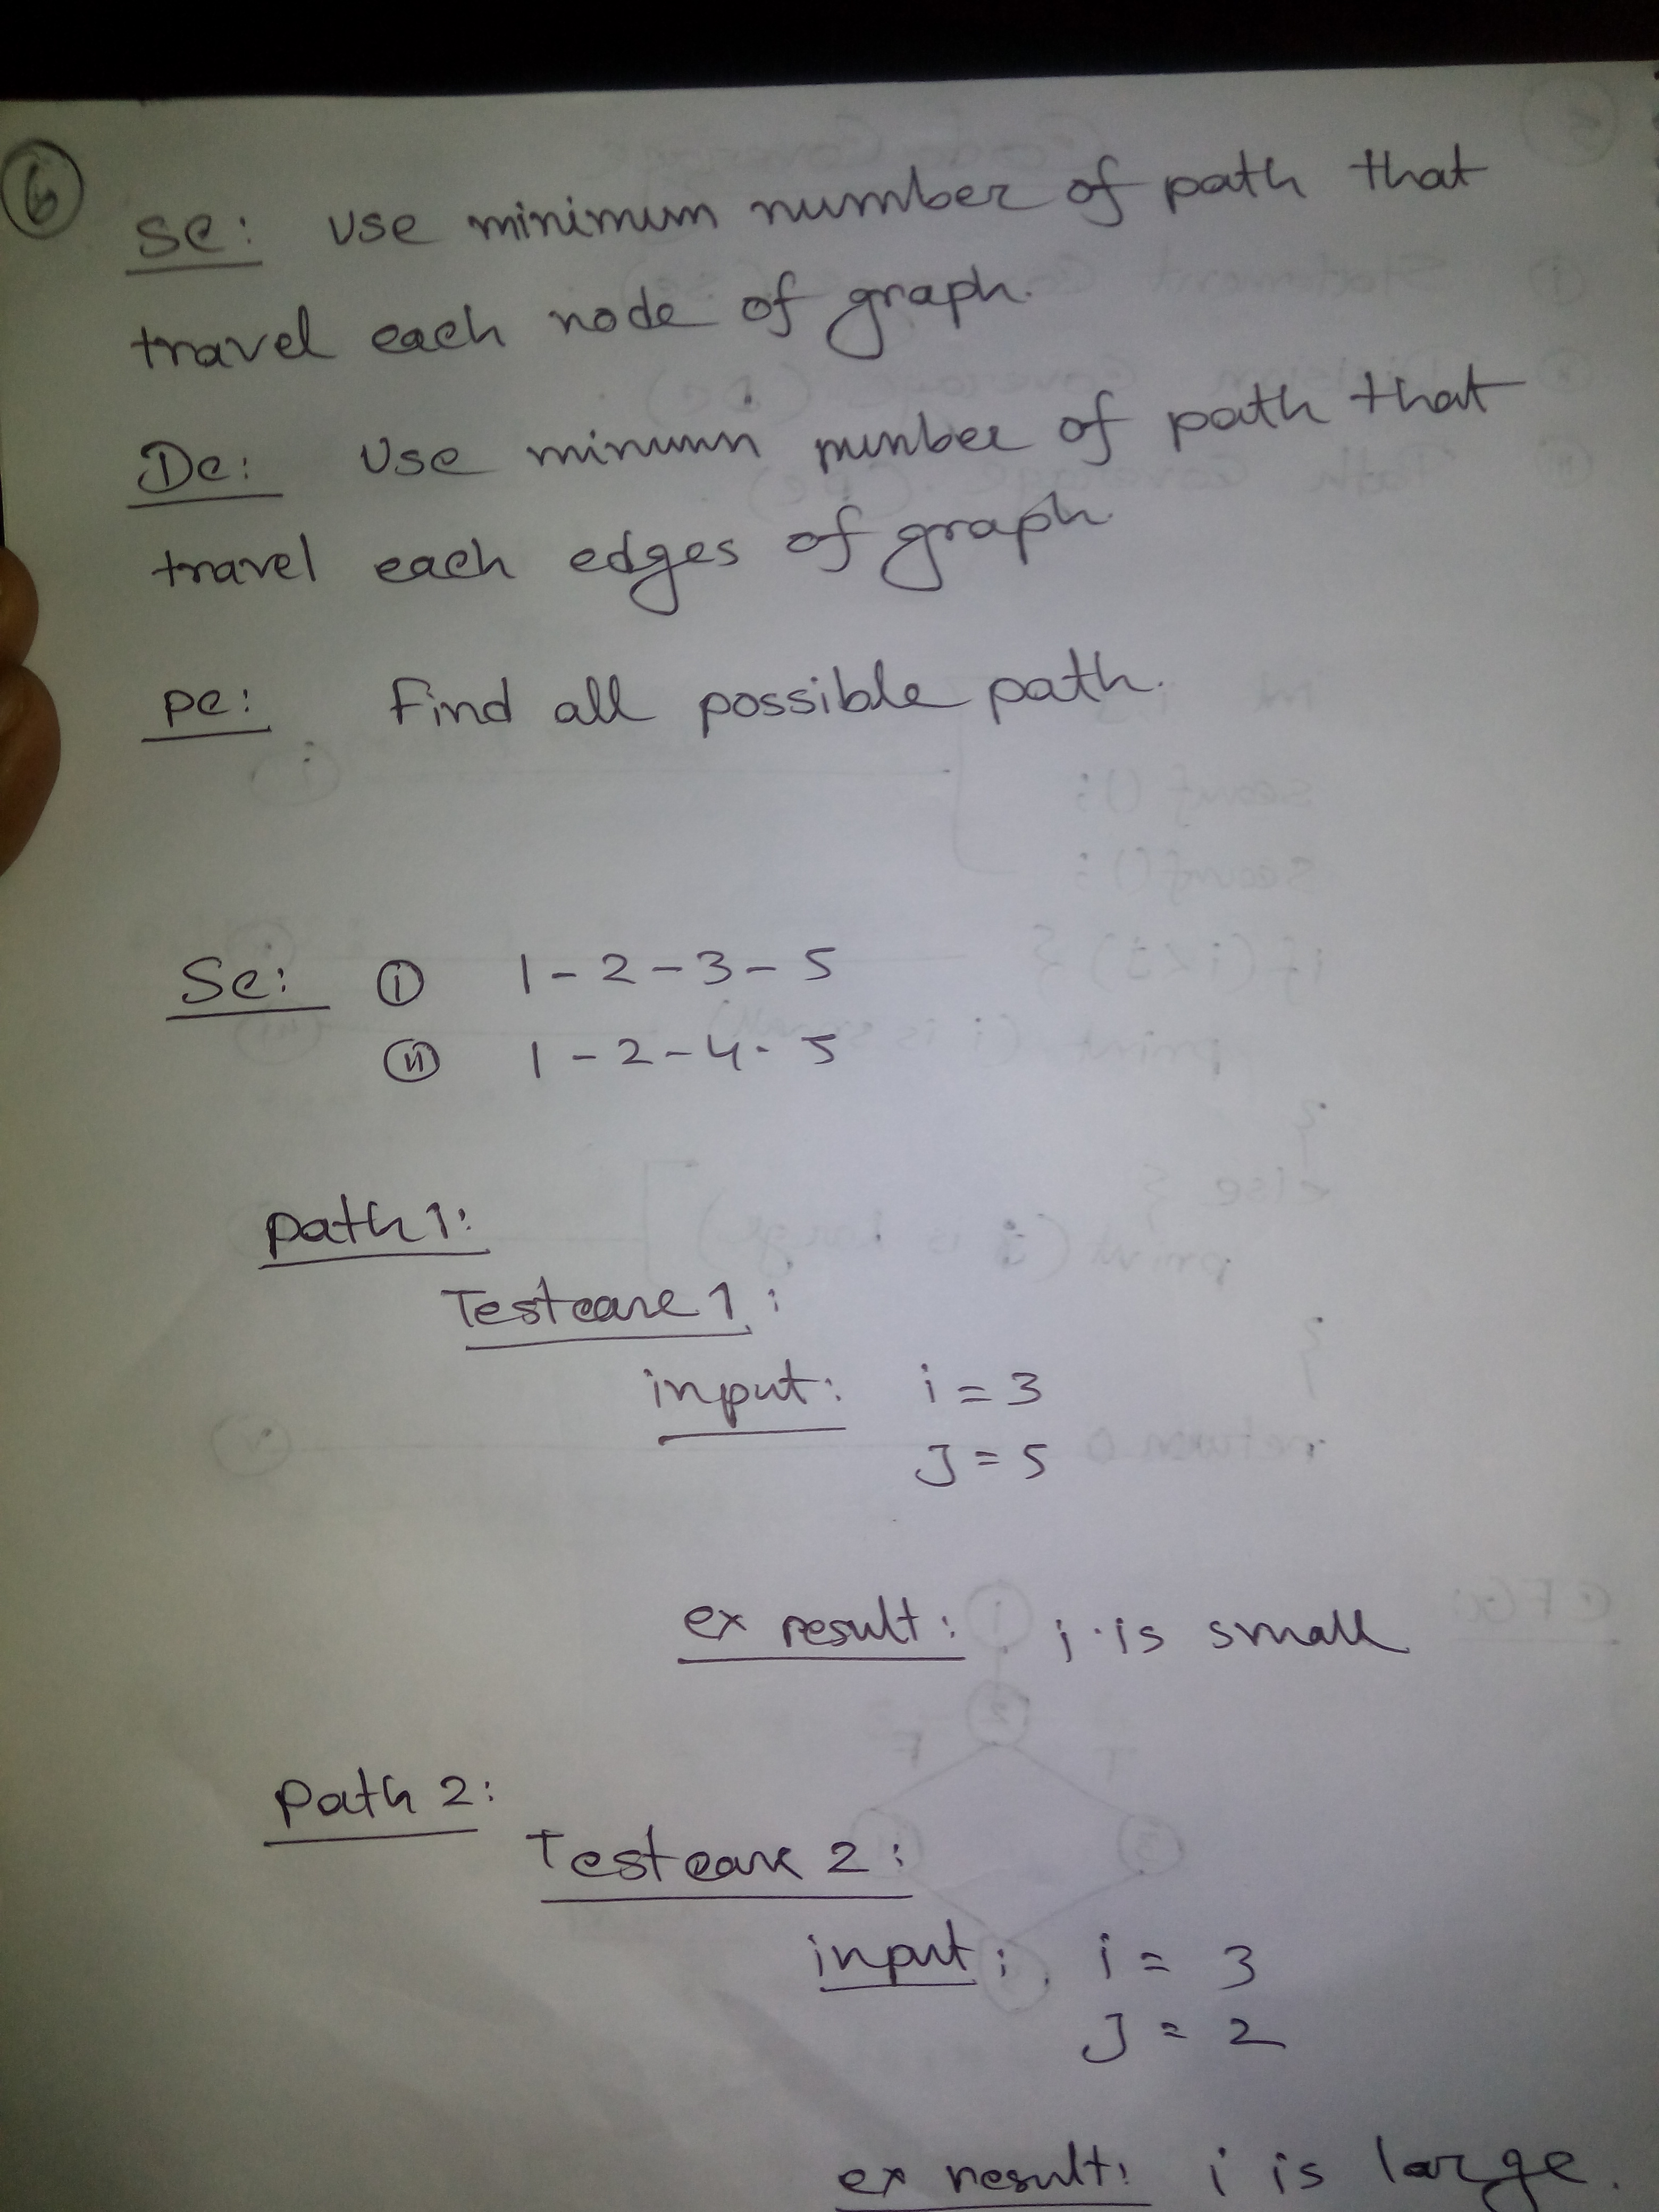 6
SC: Use minimum number of path that
travel each node of graph.
DC: Use minumn number of path that
travel each edges of graph
PC: Find all possible path.
SC: i 1-2-3-5
ii 1-2-4-5
path 1:
Testcase 1:
input: i = 3
J = 5
ex result: i is small
Path 2:
Testcase 2:
input: i = 3
J = 2
ex result: i is large.